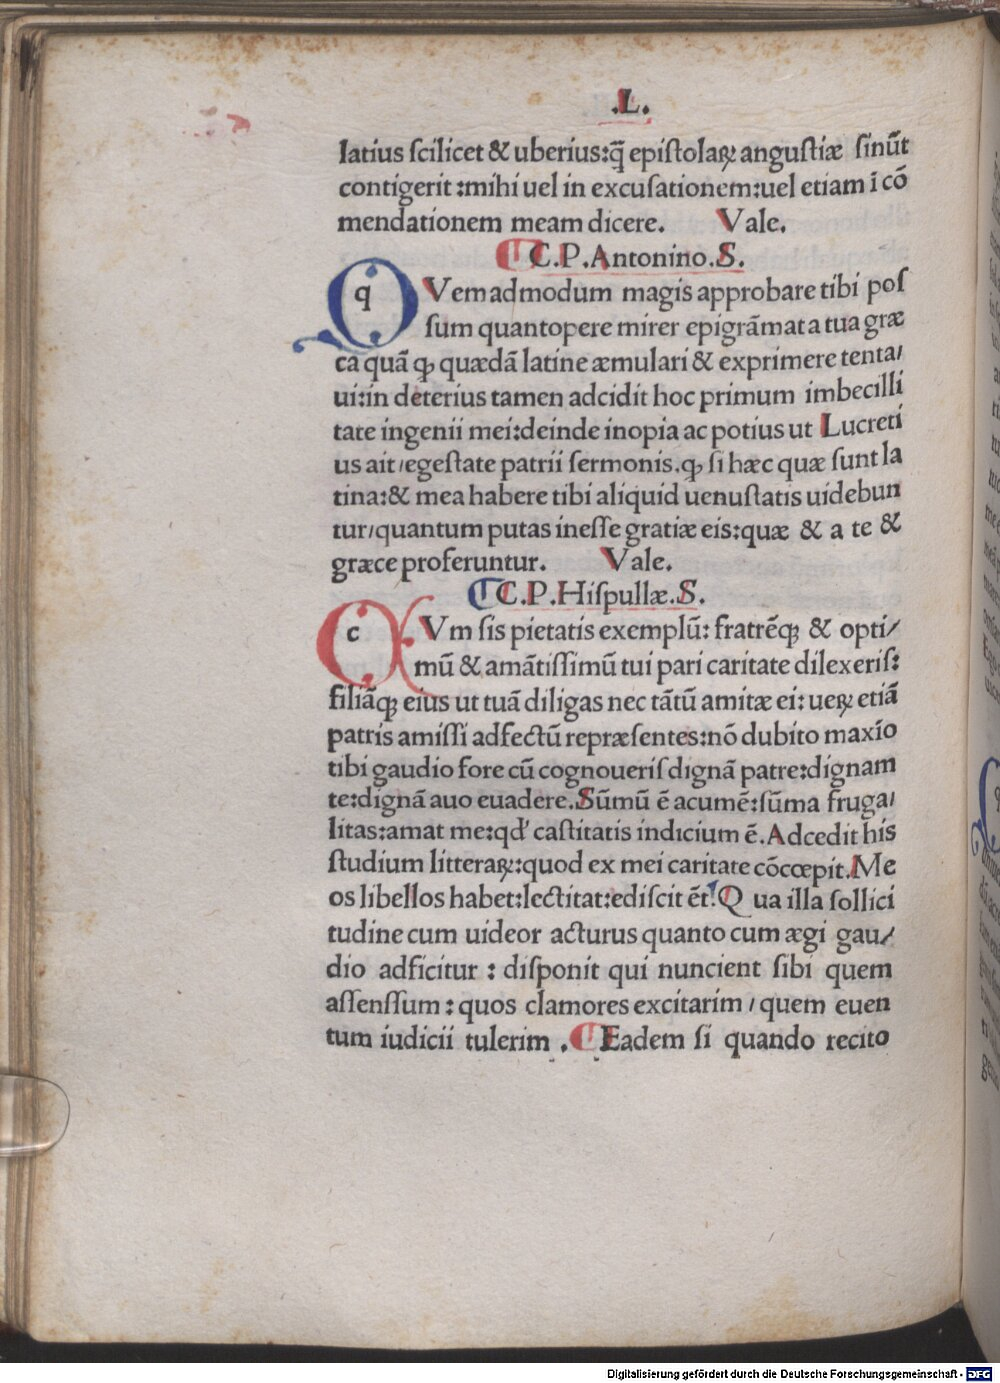 .L.
latius ſcilicet & uberius:q̃ epiſtolaꝝ anguſtiæ ſinūt
contigerit :mihi uel in excuſationem:uel etiam ī cō
mendationem meam dicere. Vale.
C.P.Antonino.S.
q Vemadmodum magis approbare tibi poſ
ſum quantopere mirer epigrāmata tua græ
ca quā ꝙ quædā latine æmulari & exprimere tenta/
ui:in deterius tamen adcidit hoc primum imbecilli
tate ingenii mei:deinde inopia ac potius ut Lucreti
us ait/egeſtate patrii ſermonis.ꝙ ſi hæc quæ ſunt la
tina:& mea habere tibi aliquid uenuſtatis uidebun
tur/quantum putas ineſſe gratiæ eis:quæ & a te &
græce proferuntur. Vale.
C.P.Hiſpullæ.S.
c Vm ſis pietatis exemplū: fratrēꝙ & opti/
mū & amātiſſimū tui pari caritate dilexeriſ:
filiāꝙ eius ut tuā diligas nec tātū amitæ ei: ueꝝ etiā
patris amiſſi adfectū repræſentes:nō dubito maxīo
tibi gaudio fore cū cognoueriſ dignā patre:dignam
te:dignā auo euadere.Sūmū ē acumē:ſūma fruga/
litas:amat me:qd' caſtitatis indicium ē.Adcedit his
ſtudium litteraꝝ:quod ex mei caritate cōcœpit.Me
os libellos habet:lectitat:ediſcit ēt.Q ua illa ſollici
tudine cum uideor acturus quanto cum ægi gau/
dio adficitur : diſponit qui nuncient ſibi quem
aſſenſſum : quos clamores excitarim / quem euen
tum iudicii tulerim . Eadem ſi quando recito
Digitalisierung gefördert durch die Deutsche Forschungsgemeinschaft - DFG